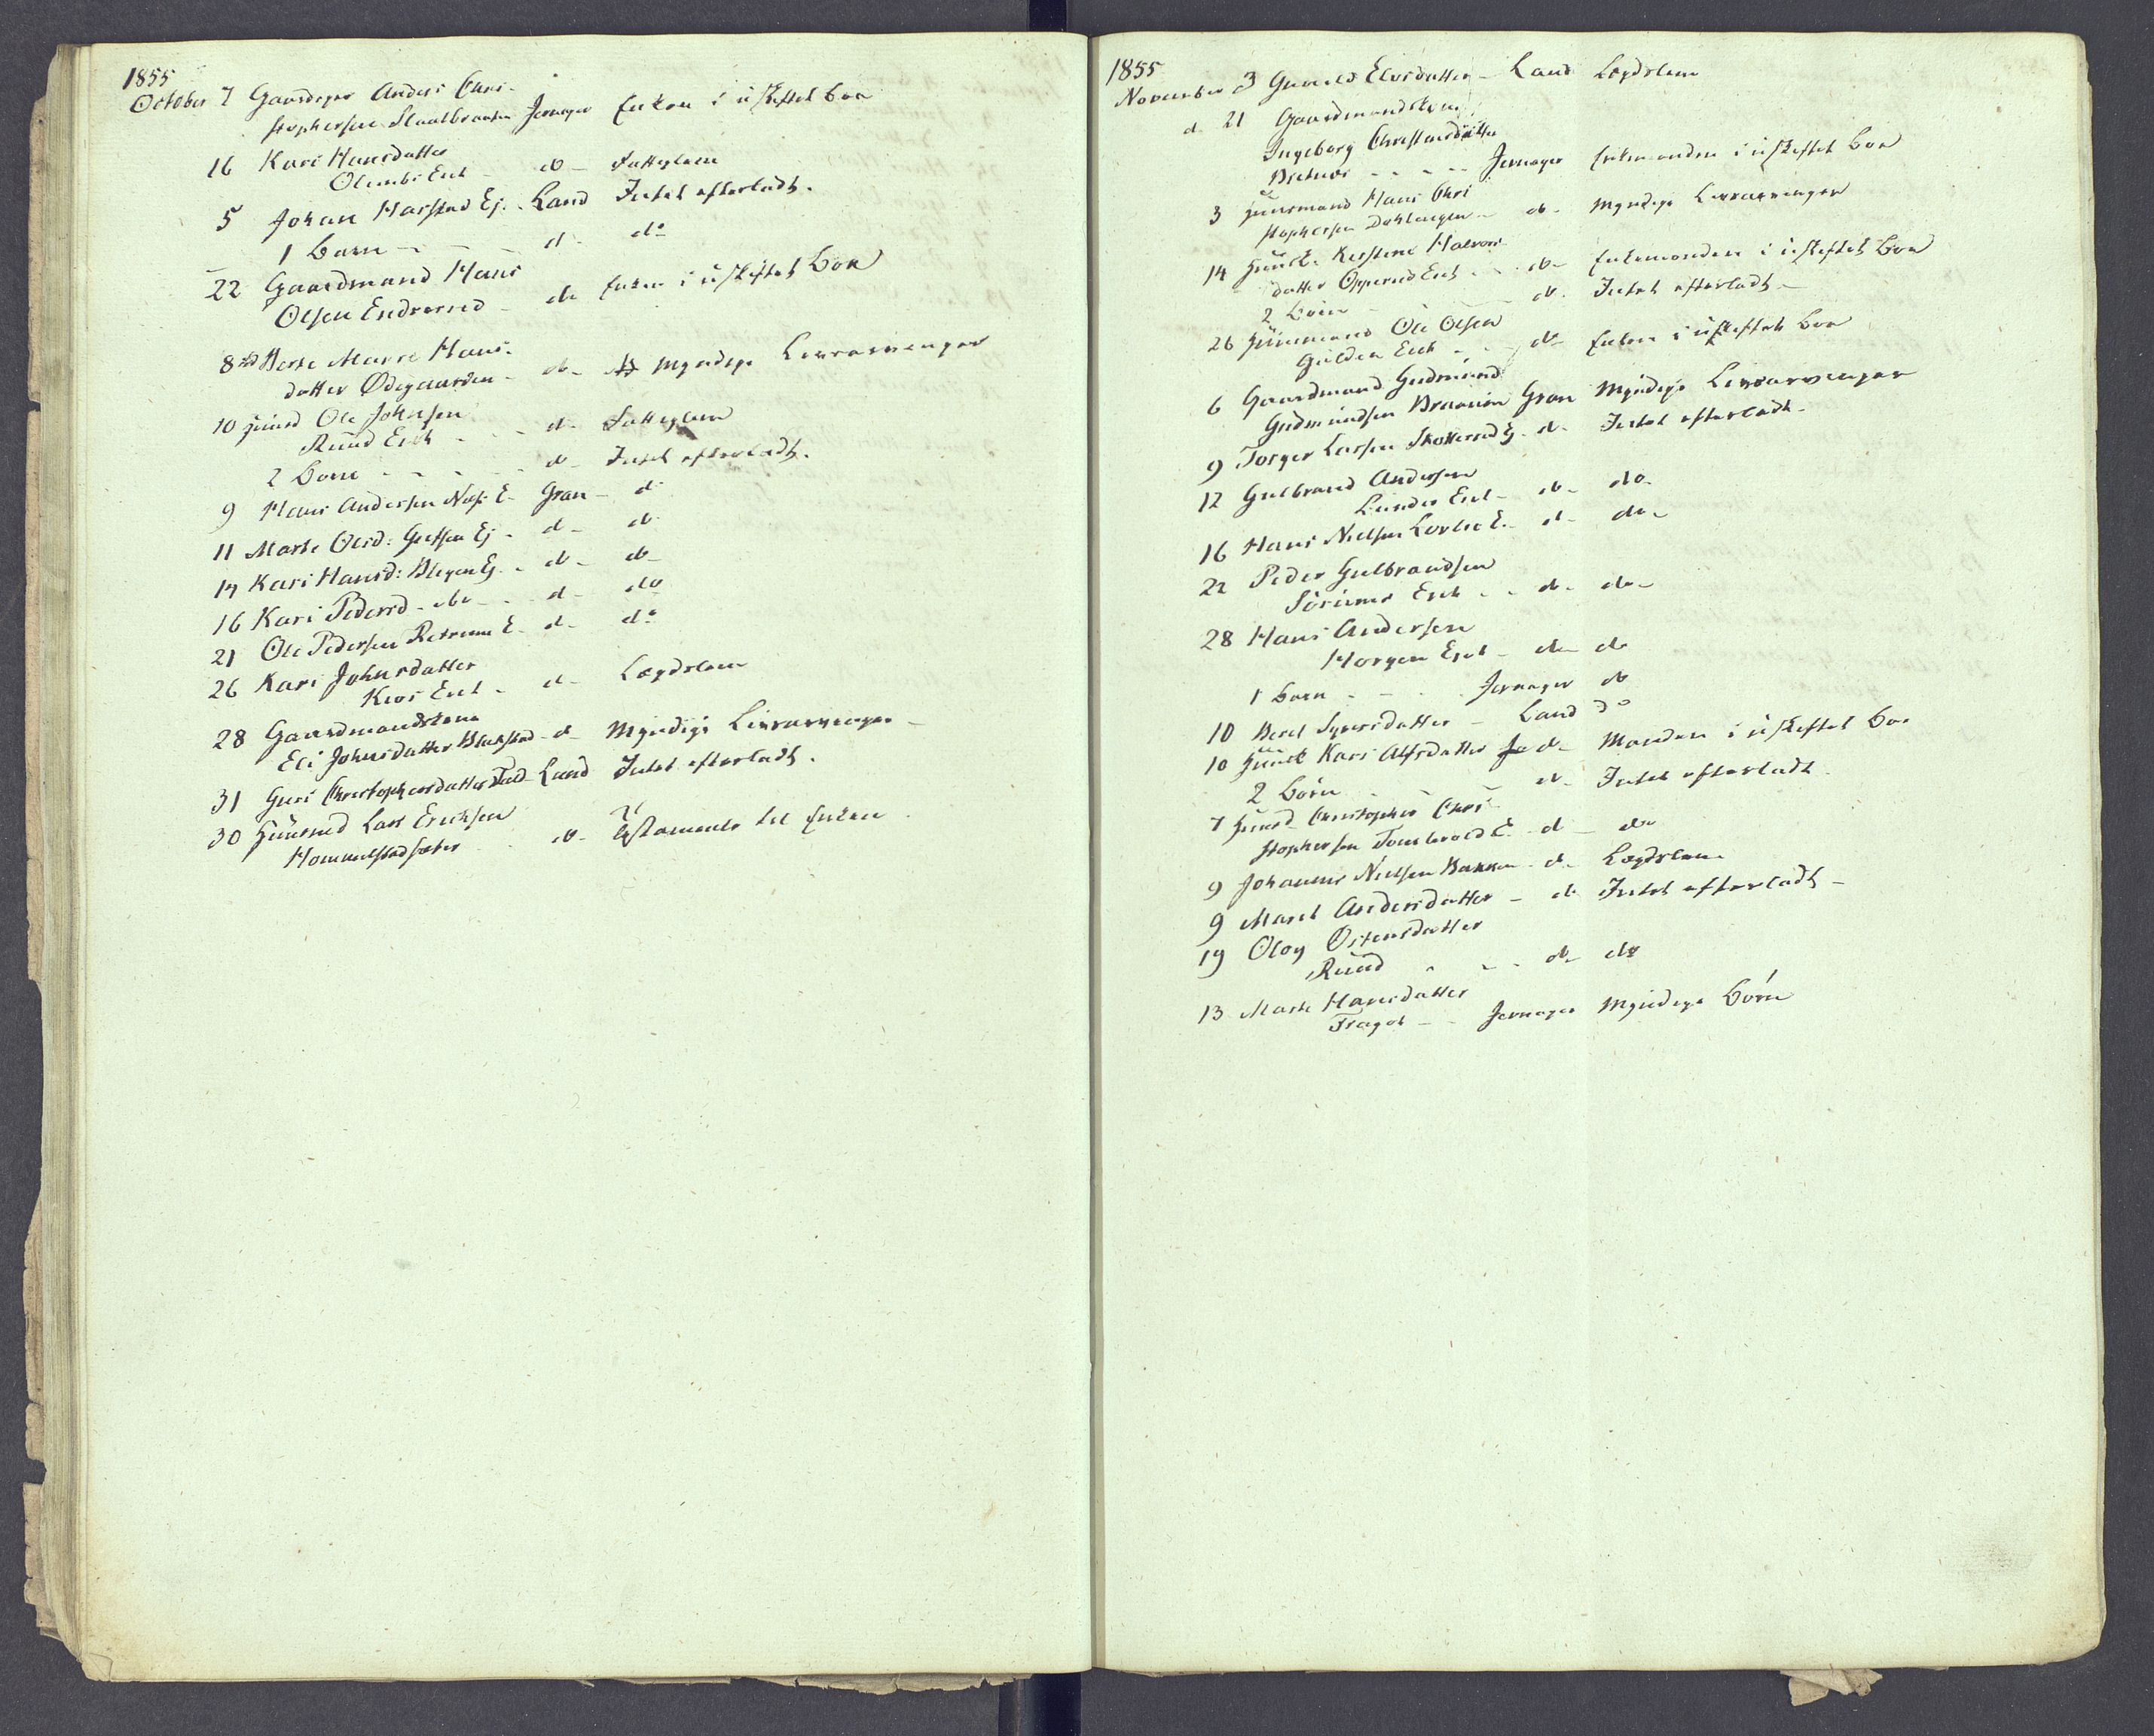 1855
October 7 Gaardeger Anders Chri-
stophersen Slaatbraaten Jevnager Enken i uskiftet Boe
16 Kari Hansdatter
Olumbs Eiet - do - Fattiglem
5 Johan Harstad Ej. - Land Intet efterladt.
1 Barn - - - d - do
22 Gaardmand Hans
Olsen Endrerud - do Enken i uskiftet Boe
8 Berte Marie Hans-
datter Ødegaarden - do - Myndige Livsarvinger
10 Huusmd Ole Johnsen
Ruud Eiet - - - d - Fattiglem
2 Børn - - - - do - Intet efterladt.
9 Hans Andersen Næs E. Gran - do
11 Marte Olsd: Ej. - d - do
14 Kari Hansd: Blegen Ej. - do - do
16 Kari Pedersd. - do - - d - do
21 Ole Pedersen E. - d - do
26 Kari Johnsdatter
Kios Eiet - d - Lægdslem
28 Gaardmandskone
Eli Johnsdatter Blakstad - d - Myndige Livsarvinger -
31 Guri Christophersdatter Land Intet efterladt.
30 Huusmd Lars Ericksen
Hommelstadsæter - do - Testamente til Enken
1855
November 3 Gunild Elvsdatter - Land Lægdslem
d. 21 Gaardmandskone
Ingeborg Christiansdatter
- - - - Jevnager Enkemanden i uskiftet Boe
3 Huusmand Hans Chri
stophersen Dahlengen - do - Myndige Livsarvinger
14 Huusk. Kerstine Halvors-
datter Opperud Eiet - - do - Enkemanden i uskiftet Boe
2 Børn - - - do - Intet efterladt -
26 Huusmand Ole Olsen
Gulden Eiet - - - do - Enken i uskiftet Boe
6 Gaardmand Gudmund
Gudmundsen Braastien Gran Myndige Livsarvinger
9 Torger Larsen Ej. - d - Intet efterladt.
12 Gulbrand Andersen
Lunder Eiet - do - do
16 Hans Nielsen Lovlie E. - d - do -
22 Peder Gulbrandsen
Sörum Eiet - - do - do -
28 Hans Andersen
Horgen Eiet - do - do
1 Barn - - - Jevnager do
10 Berel Syversdatter - Land do
10 Huusk Kari Alfsdatter do - Manden i uskiftet Boe
2 Börn - - - do - Intet efterladt.
7 Huusmd Christopher Chri-
stophersen E. - d - do
9 Johannes Nielsen Bakken - do - Lægdslem
9 Marit Andersdatter - do Intet efterladt -
19 Olog Ostensdatter
Ruud - - - do - do
13 Marte Hansdatter
- Jevnager Myndige Börn